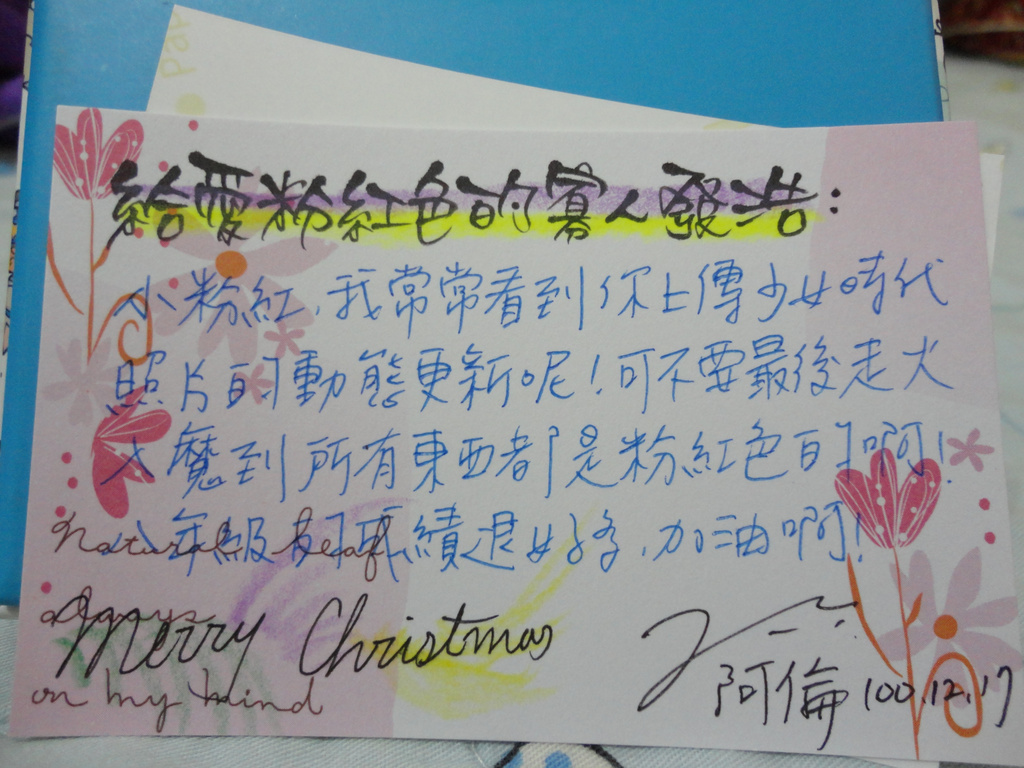 給愛粉紅色的寡人發浩：
小粉紅，我常常看到你上傳少女時代
照片的動態更新呢！可不要最後走火
入魔到所有東西都是粉紅色的啊！
八年級 成績退好多，加油啊！
Natural leaf
always
Merry Christmas
on my mind
阿倫 100.12.17